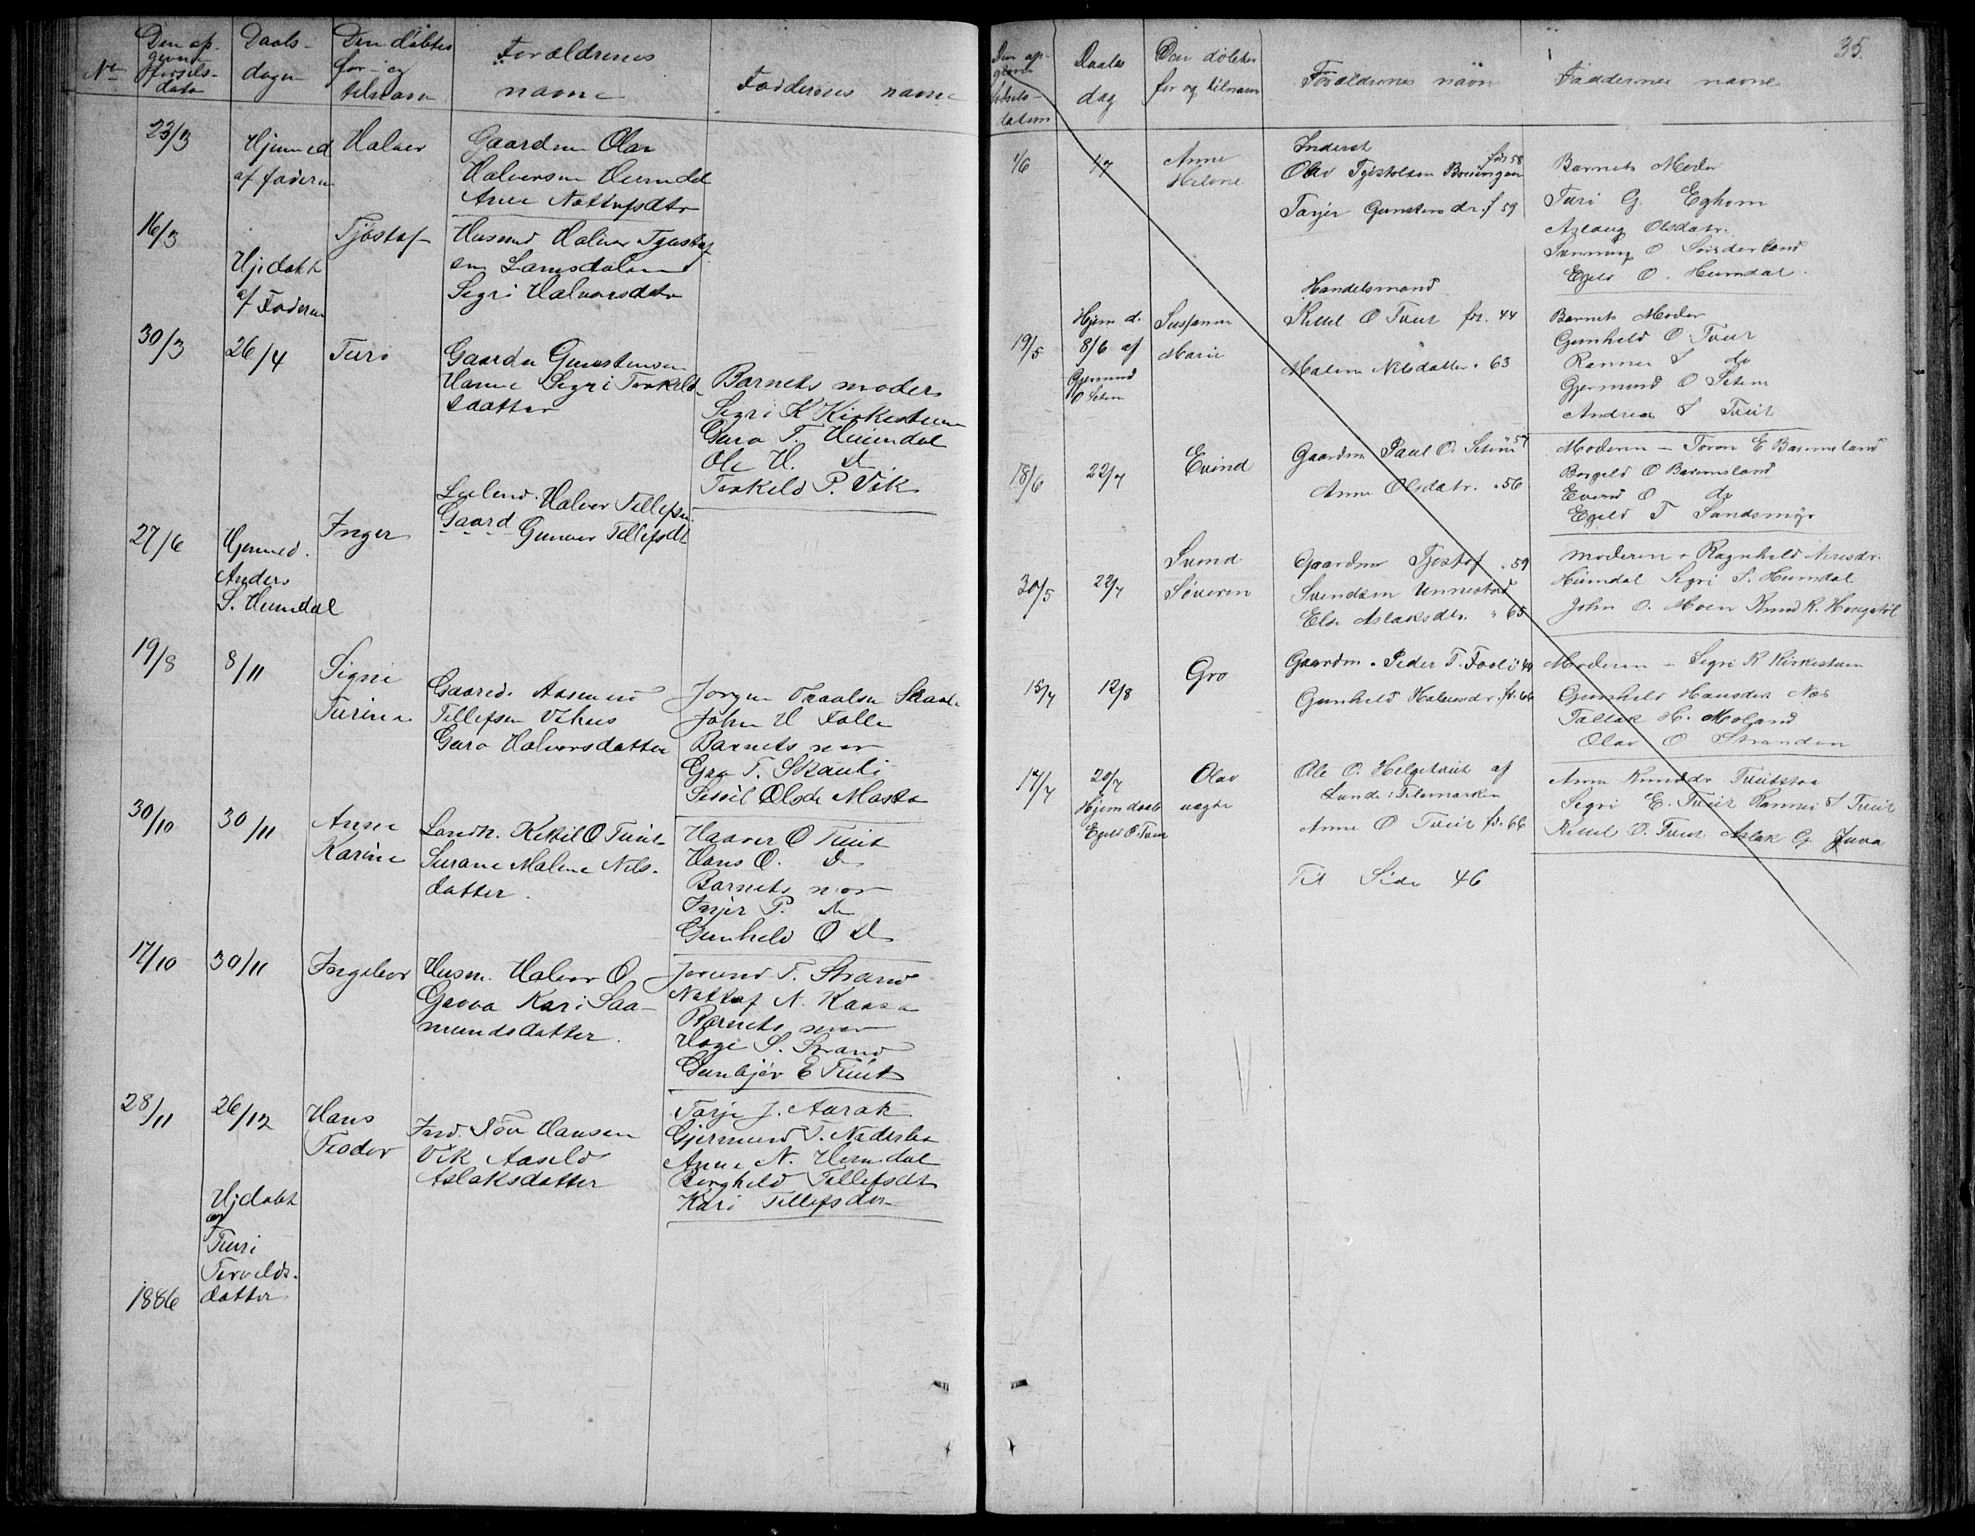 No
Den op-
givne
fødsels-
dato
Daabs-
dagen
Den døbtes
for- og
tilnavn
Forældrenes
navne
Faddernes navne
23/3
Hjemmed
af faderen
Halvor
Gaardm Olav
Halvorsen Heimdal
Anne Nottofsdtr
16/3
Hjedøbt
af Faderen
Tjøstaf
Husmd Halvor Tjøstaf
sen
Segri Halvorsdatr
30/3
26/4
Turi
Gaardm Gunstensen
Segri Torkeld
daatter
Barnets moder
Segri K Kirkestuen
Guro T. Heimdal
Ole H. do
Torkeld P. Vik
27/6
Hjemmed.
Anders
S. Heimdal
Inger
Leilend. Halvor Tellefsen
Gaard Gunvor Tellefsdt
19/8
8/11
Signe
Turine
Gaard. Aasmund
Tellefsen Vehus
Guro Halvorsdatter
Jorgen Skaali
John H Folle
Barnets mor
Gro T. Skauli
Olsdr
30/10
30/11
Anne
Karine
Landh. Kittil O Tveit
Surane Malene Nils-
datter.
Haavor O Tveit
Hans O. do
Barnets mor
Inger P. do
Gunheld O do
17/10
30/11
Ingebor
Husm. Halvor O
Govva Kari Saa-
mundsdatter.
Jorund T. Strand
Nottof N. Kaasa
Barnets mor
Hæge S. Strand
Gunbjør E Tveit
28/11
26/12
Hjedøbt
af
Turi
Torvelds-
datter
Hans
Teodor
Ind. Tov Hansen
Vik Aaseld
Aslaksdatter
Tarje J. Aarak
Gjermund T. Nederbø
Anne N. Heimdal
Borgheld Tellefsdt
Kari Tellefsdtr
1886
35.
Den op-
givne
fødsels-
datum
Daabs
dag
Den døbtes
for og tilnavn
Forældrenes navn
Faddernes navne
1/6
1/7
Anne
Helene
Inderst
Olav Tjøstolsen fdt 58
Tarjer Gunstens dr. f 59
Barnets Moder
Turi G. Eghom
Aslaug Olsdatr.
O Sønderland
Egeld O. Heimdal.
19/5
Hjem d.
8/6 af
Gjermund
O Seteen
Susanne
Marie
Handelsmand
Kittel O Tveit fdt. 44
Malene Nilsdatter. 63
Barnets Moder
Gunheld O. Tveit
Rannei S do
Gjermund O Seteen
Andrea S Tveit
18/6
22/7
Evind
Gaardm Paul O. 57
Anne Olsdatr. 56
Moderen – Toron E Barmsland
Borgeld O Barmsland
Evind O do
Egeld T Sandsmyr
30/5
22/7
Svend
Søveren
Gaardm Tjøstof 59
Svendsen Unnestad
Else Aslaksdtr. 65
Moderen + Ragnheld
Heimdal Segri S. Heimdal
John O. Moen Knud K. Haugstøl
15/7
12/8
Gro
Gaardm. Peder T. 44
Gunheld Halvorsdr. fdt. 66
Moderen – Segri K Kirkestuen
Gunheld Hansdtr Næs
Tallak H. Moland
Olav O Stranden
17/7
20/7
Hjemdøbt
Egeld O Tveit
Olav
uægte
Ole O. Helgetveit af
Lunde i Telemarken
Anne O Tveit fdt. 66
Anne Knudsdr
Segri E. Tveit Rannei S Tveit
Kittel O. Tveit Aslak G. Juva
Til Side 46